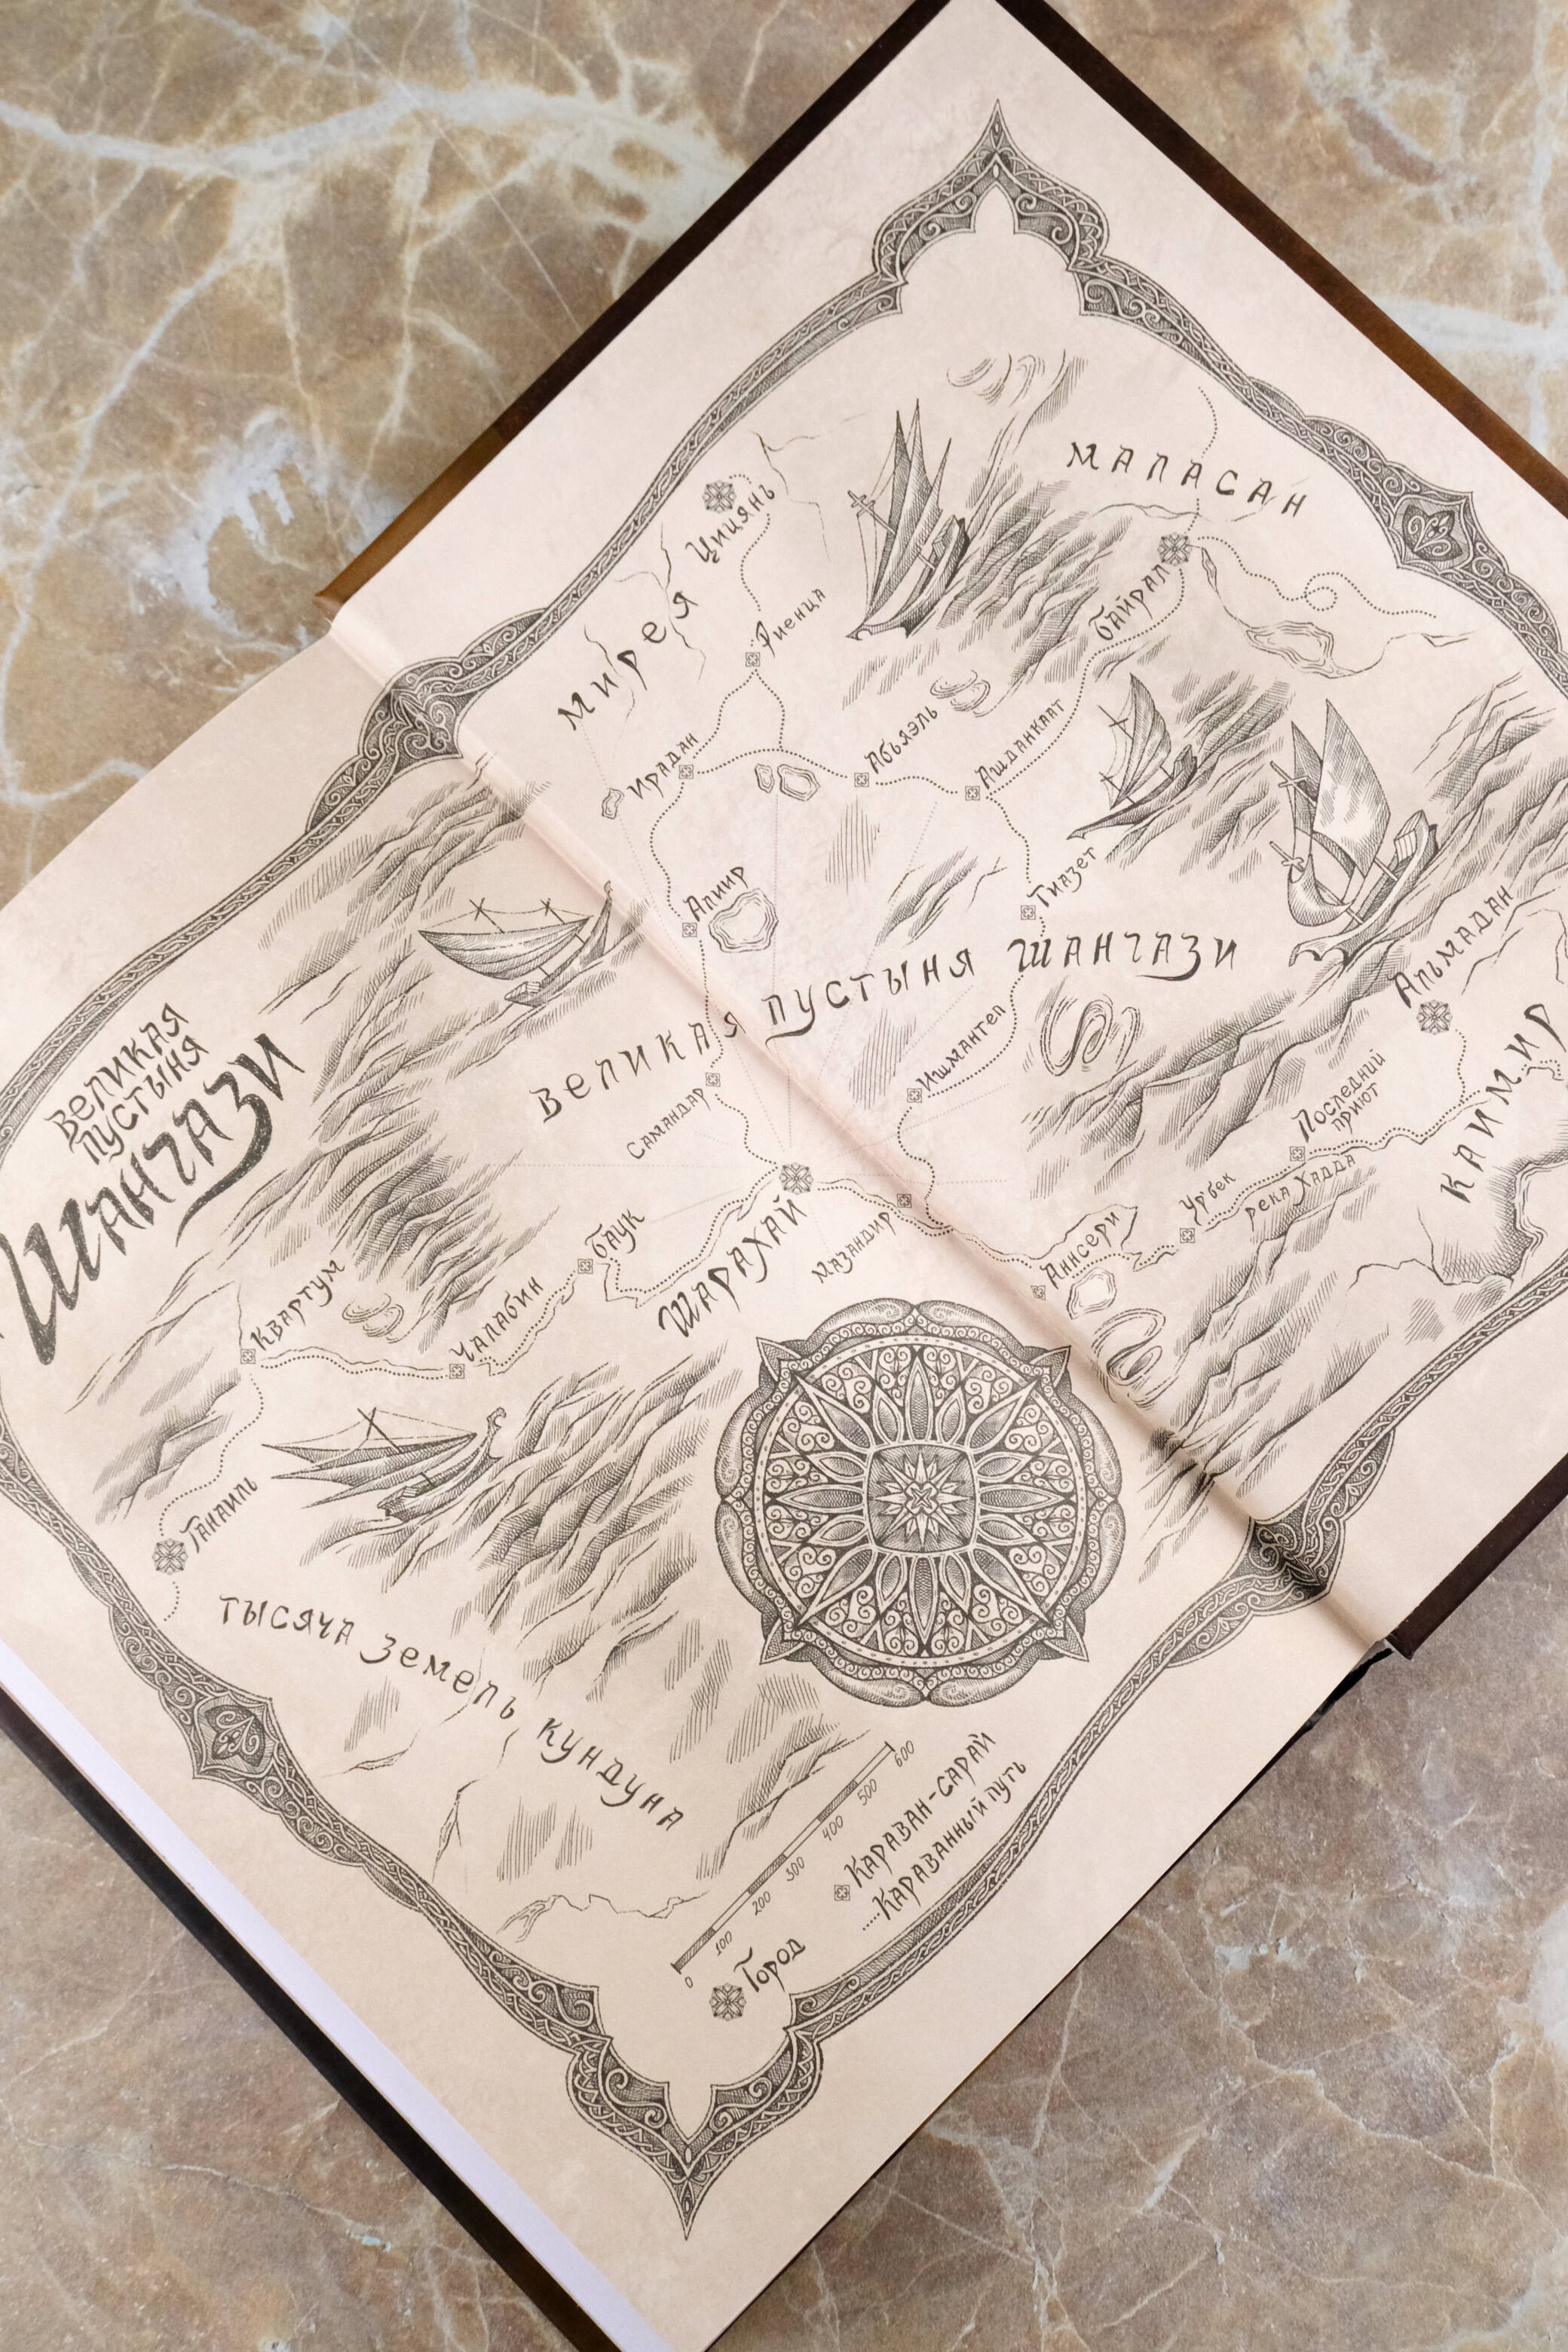 ВЕЛИКАЯ
ПУСТЫНЯ
ШАНГАЗИ
МАЛАСАН
Цицянь
МИРЕЯ
Риенца
Байрал
Ирадан
Абьяэль
Ашданкаат
Алиир
Тиазет
ВЕЛИКАЯ ПУСТЫНЯ ШАНГАЗИ
Альмадан
КАИМИР
Ишмантеп
Самандар
Последний
приют
Урбек
река Хадда
ШАРАХАЙ
Мазандир
Ансери
Баук
Чалабин
Квартум
Ганаиль
ТЫСЯЧА ЗЕМЕЛЬ КУНДУНА
0 100 200 300 400 500 600
Караван-сарай
Караванный путь
Город